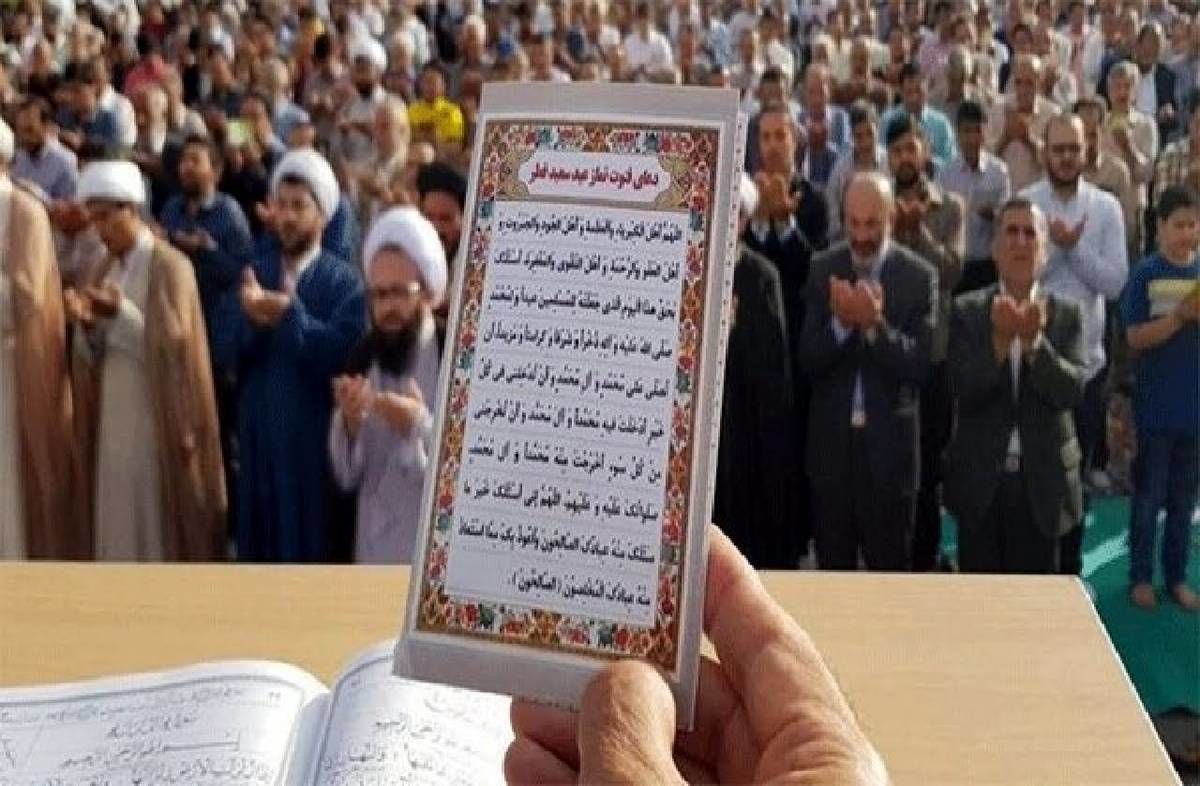 دعای قنوت نماز عید سعید فطر
اللّهُمَّ أهْلَ الْکِبْرِیاءِ وَالْعَظَمَةِ وَ أَهْلَ الْجُودِ وَالْجَبَرُوتِ وَ
أَهْلَ الْعَفْوِ وَالرَّحْمَةِ وَ أَهْلَ التَّقْوى وَالْمَغْفِرَةِ أَسْئَلُکَ
بِحَقِّ هذَا الْیَومِ الَّذی جَعَلْتَهُ لِلْمُسْلِمینَ عیداً وَ لِمُحَمَّدٍ
صَلَّى اللهُ عَلَیْهِ وَ آلِهِ ذُخْراً وَ شَرَفًا وَ کَرامَتًا وَ مَزیداً أَن
تُصَلِّىَ عَلى مُحَمَّدٍ وَ آلِ مُحَمَّدٍ وَ أَنْ تُدْخِلَنى فى کُلِّ
خَیْرٍ أَدْخَلْتَ فیهِ مُحَمَّداً وَ آلَ مُحَمَّدٍ وَ أَنْ تُخْرِجَنى
مِنْ کُلِّ سُوءٍ أَخْرَجْتَ مِنْهُ مُحَمَّداً وَ آلَ مُحَمَّدٍ
صَلَواتُکَ عَلَیْهِ وَ عَلَیْهِمْ اللّهُمَّ إنّى أَسْئَلُکَ خَیْرَ ما
سَئَلَکَ مِنْهُ عِبادُکَ الصّالِحُونَ وَأَعُوذُ بِکَ مِمَّا اسْتَعاذَ
مِنْهُ عِبادُکَ الْمُخْلِصُونَ (الصّالِحُونَ).